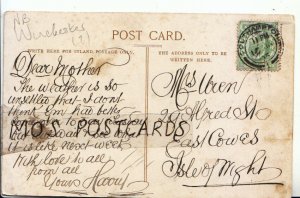 NB
Winchester
POST CARD.
WRITE HERE FOR INLAND POSTAGE ONLY.
THE ADDRESS ONLY TO BE
WRITTEN HERE.
Dear Mother
The weather is so
unsettled that I dont
think Em had better
MO'S POSTCARDS
it is like next week
with love to all
from all
Yours Harry
Mrs Uren
99 Alfred St
East Cowes
Isle of Wight